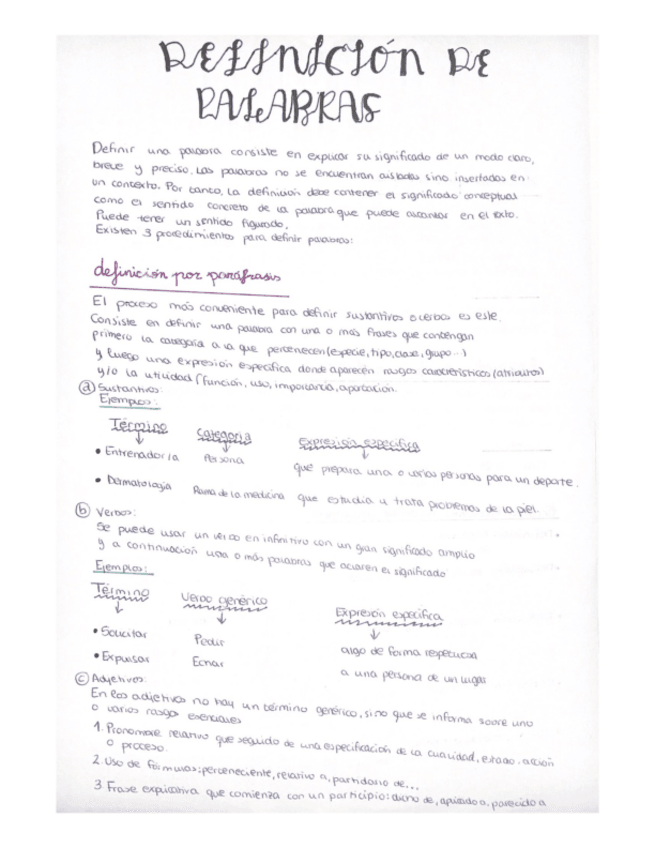 DEFINICIÓN DE
PALABRAS
Definir una palabra consiste en explicar su significado de un modo claro,
breve y preciso. Las palabras no se encuentran aisladas sino insertadas en
un contexto. Por tanto, la definición debe contener el significado conceptual
como el sentido concreto de la palabra que puede alcanzar en el texto.
Puede tener un sentido figurado.
Existen 3 procedimientos para definir palabras:
definición por paráfrasis
El proceso más conveniente para definir sustantivos o verbos es este.
Consiste en definir una palabra con una o más frases que contengan
primero la categoría a la que pertenecen (especie, tipo, clase, grupo...)
y luego una expresión específica donde aparecen rasgos característicos (atributos)
y/o la utilidad (función, uso, importancia, aportación.
a) Sustantivos:
Ejemplos:
Término Categoría Expresión específica
• Entrenador/a Persona que prepara una o varias personas para un deporte.
• Dermatología Rama de la medicina que estudia y trata problemas de la piel.
b) Verbos:
Se puede usar un verbo en infinitivo con un gran significado amplio
y a continuación una o más palabras que aclaren el significado
Ejemplos:
Término Verbo genérico Expresión específica
• Solicitar Pedir algo de forma respetuosa
• Expulsar Echar a una persona de un lugar
c) Adjetivos:
En los adjetivos no hay un término genérico, sino que se informa sobre uno
o varios rasgos esenciales
1. Pronombre relativo que seguido de una especificación de la cualidad, estado, acción
o proceso.
2. Uso de fórmulas: perteneciente, relativo a, partidario de...
3. Frase explicativa que comienza con un participio: dicho de, aplicado a, parecido a